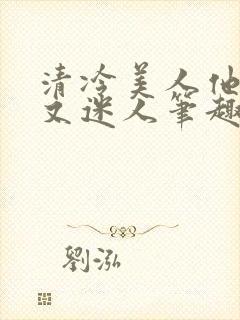 清冷美人他
又迷人笔趣
劉泓